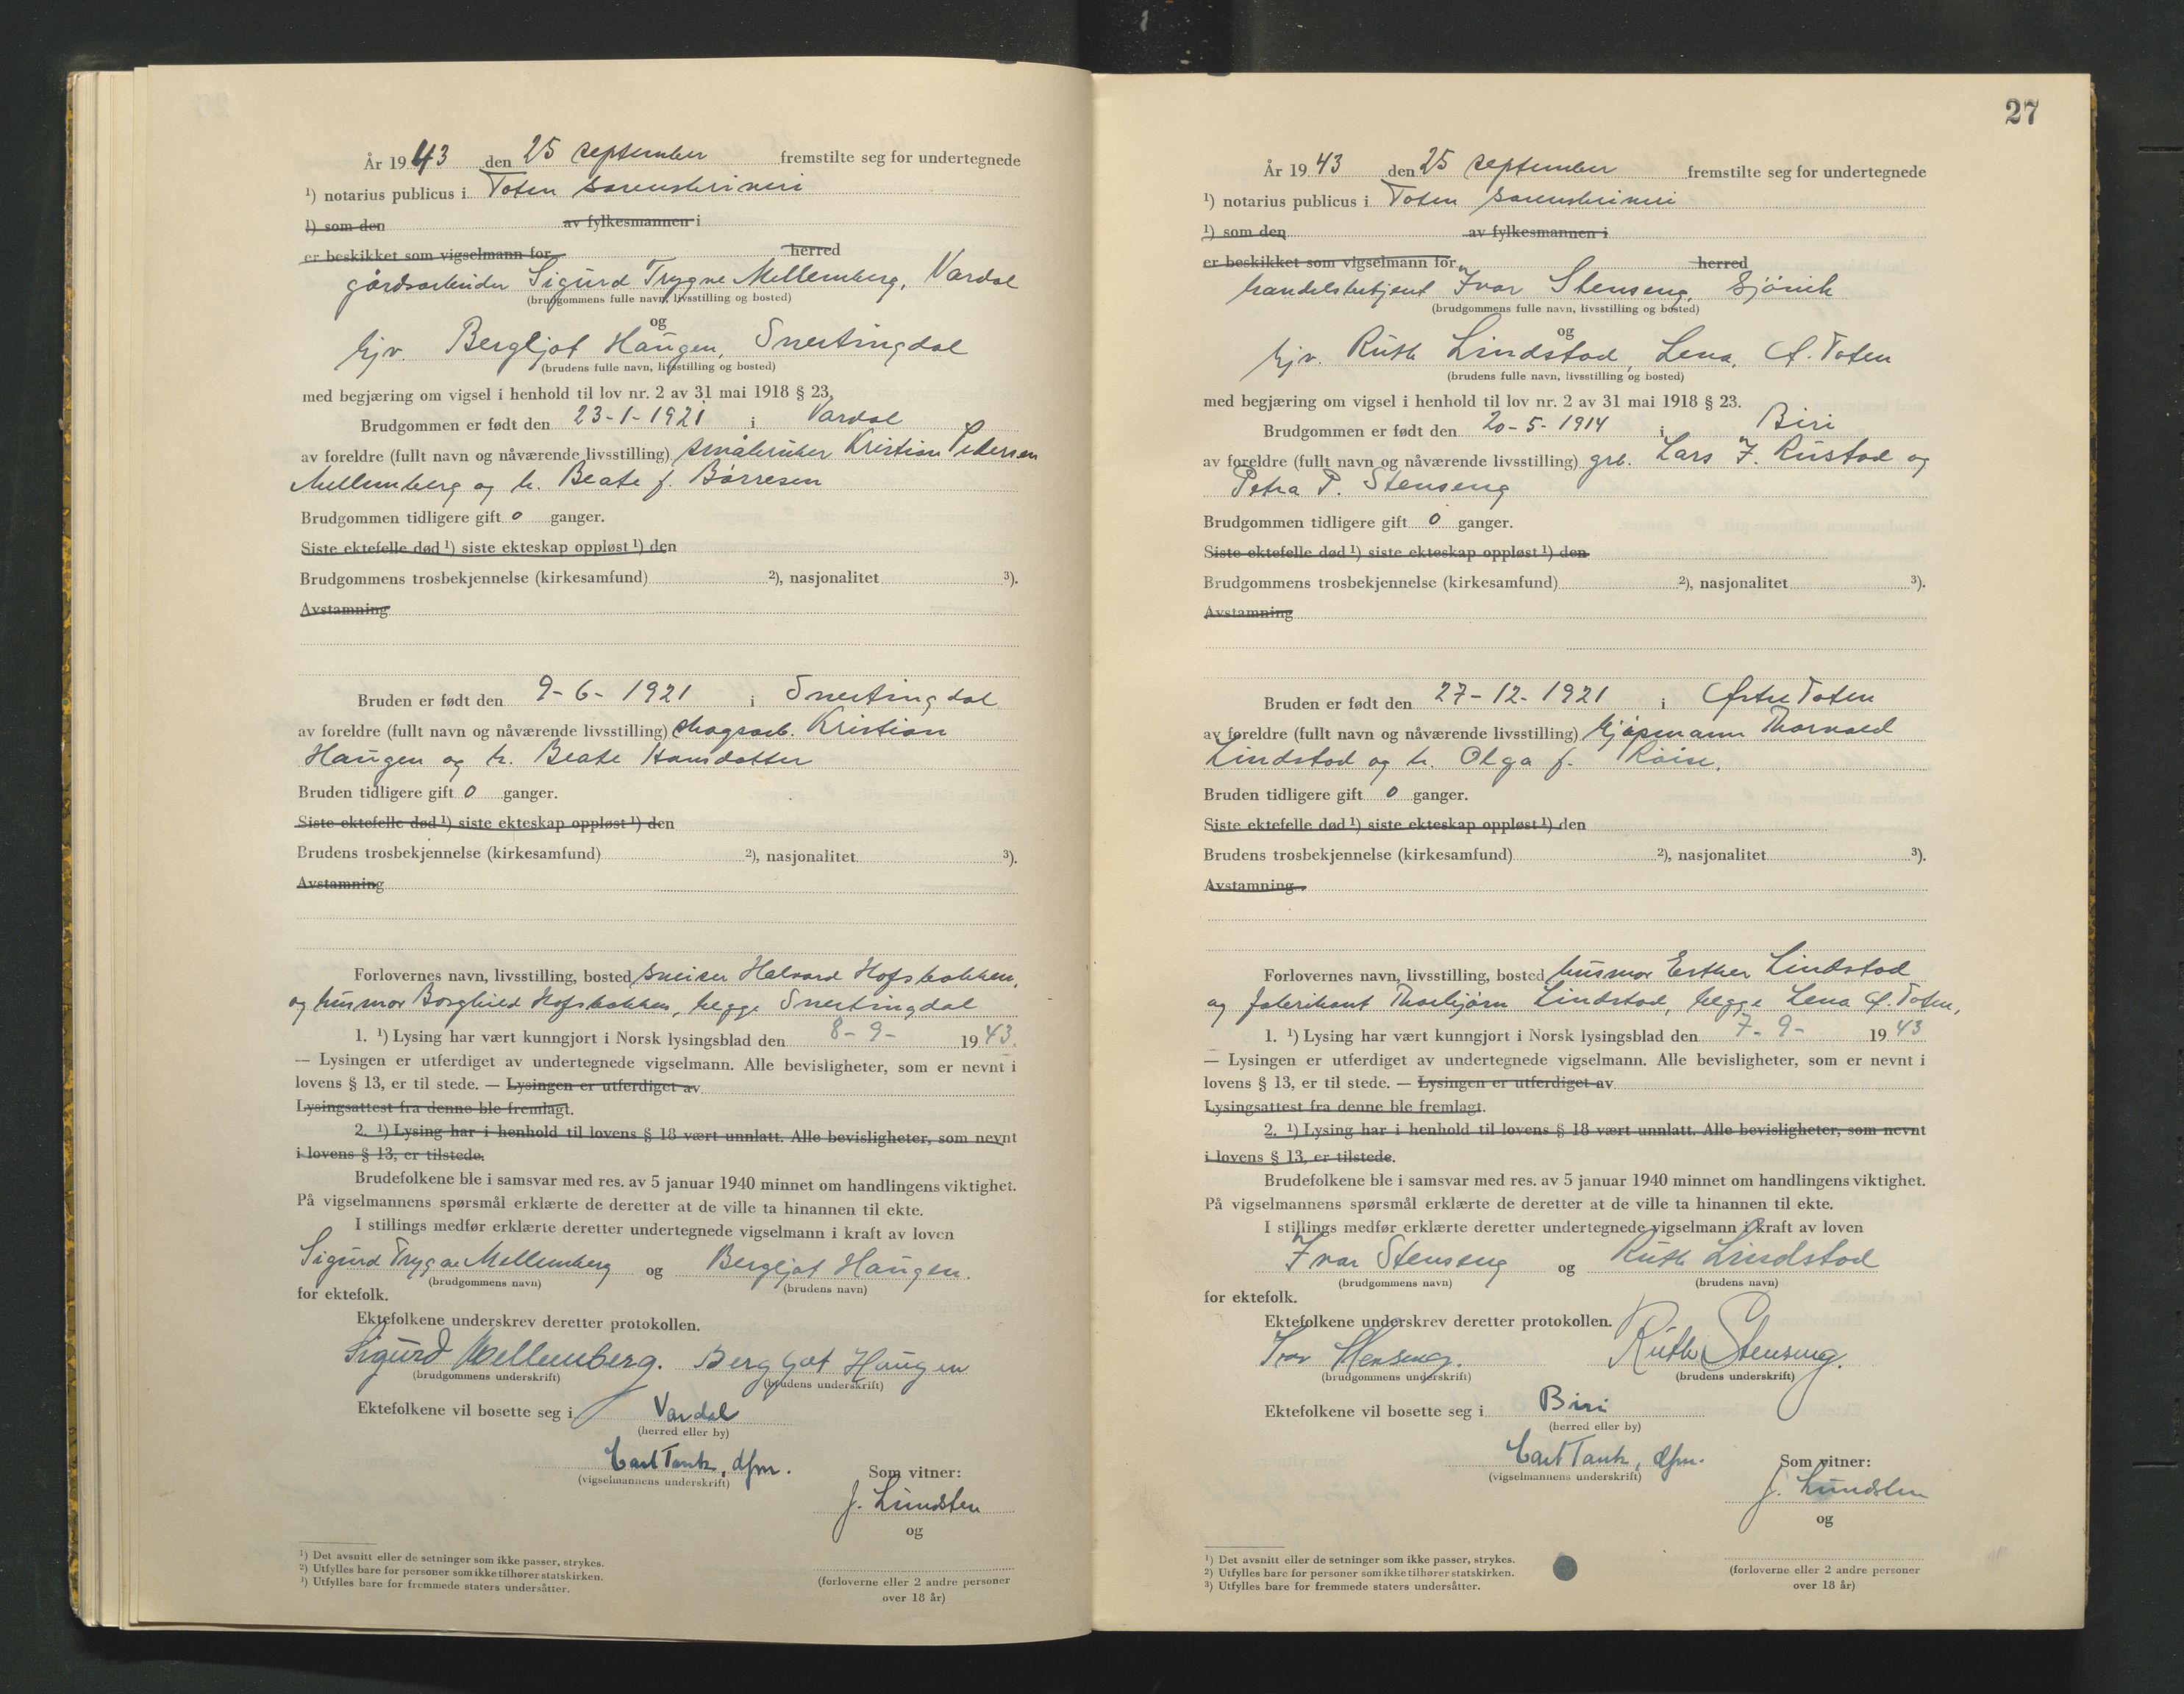 År 1943 den 25 september fremstilte seg for undertegnede
¹) notarius publicus i Toten sorenskriveri
¹) som den av fylkesmannen i
er beskikket som vigselmann for herred
gårdsarbeider Sigurd Trygve Mellemberg, Vardal
(brudgommens fulle navn, livsstilling og bosted)
og
hjv. Bergljot Haugen, Snertingdal
(brudens fulle navn, livsstilling og bosted)
med begjæring om vigsel i henhold til lov nr. 2 av 31 mai 1918 § 23.
Brudgommen er født den 23-1-1921 i Vardal
av foreldre (fullt navn og nåværende livsstilling) småbruker Kristian Pedersen
Mellemberg og h. Beate f. Børresen
Brudgommen tidligere gift 0 ganger.
Siste ektefelle død ¹) siste ekteskap oppløst ¹) den
Brudgommens trosbekjennelse (kirkesamfund) ²), nasjonalitet ³).
Avstamning
Bruden er født den 9-6-1921 i Snertingdal
av foreldre (fullt navn og nåværende livsstilling) skogsarb. Kristian
Haugen og h. Beate Hansdatter
Bruden tidligere gift 0 ganger.
Siste ektefelle død ¹) siste ekteskap oppløst ¹) den
Brudens trosbekjennelse (kirkesamfund) ²), nasjonalitet ³).
Avstamning
Forlovernes navn, livsstilling, bosted sveiser Halvard Hofsbakken,
og husmor Borghild Hofsbakken, begge Snertingdal
1. ¹) Lysing har vært kunngjort i Norsk lysingsblad den 8-9- 1943.
— Lysingen er utferdiget av undertegnede vigselmann. Alle bevisligheter, som er nevnt i
lovens § 13, er til stede. — Lysingen er utferdiget av
Lysingsattest fra denne ble fremlagt.
2. ¹) Lysing har i henhold til lovens § 18 vært unnlatt. Alle bevisligheter, som nevnt
i lovens § 13, er tilstede.
Brudefolkene ble i samsvar med res. av 5 januar 1940 minnet om handlingens viktighet.
På vigselmannens spørsmål erklærte de deretter at de ville ta hinannen til ekte.
I stillings medfør erklærte deretter undertegnede vigselmann i kraft av loven
Sigurd Trygve Mellemberg og Bergljot Haugen.
(brudgommens navn) (brudens navn)
for ektefolk.
Ektefolkene underskrev deretter protokollen.
Sigurd Mellemberg. Bergljot Haugen
(brudgommens underskrift) (brudens underskrift)
Ektefolkene vil bosette seg i Vardal
(herred eller by)
Carl Tank, dfm.
(vigselmannens underskrift)
Som vitner:
J. Lundsten
og
(forloverne eller 2 andre personer
over 18 år)
¹) Det avsnitt eller de setninger som ikke passer, strykes.
²) Utfylles bare for personer som ikke tilhører statskirken.
³) Utfylles bare for fremmede staters undersåtter.
27
År 1943 den 25 september fremstilte seg for undertegnede
¹) notarius publicus i Toten sorenskriveri
¹) som den av fylkesmannen i
er beskikket som vigselmann for herred
handelsbetjent Ivar Stenseng, Gjövik
(brudgommens fulle navn, livsstilling og bosted)
og
hjv. Ruth Lindstad, Lena, Ø. Toten
(brudens fulle navn, livsstilling og bosted)
med begjæring om vigsel i henhold til lov nr. 2 av 31 mai 1918 § 23.
Brudgommen er født den 20-5-1914 i Biri
av foreldre (fullt navn og nåværende livsstilling) grb. Lars J. Rustad og
Petra P. Stenseng
Brudgommen tidligere gift 0 ganger.
Siste ektefelle død ¹) siste ekteskap oppløst ¹) den
Brudgommens trosbekjennelse (kirkesamfund) ²), nasjonalitet ³).
Avstamning
Bruden er født den 27-12-1921 i Østre Toten
av foreldre (fullt navn og nåværende livsstilling) kjøpmann Thorvald
Lindstad og h. Olga f. Røise.
Bruden tidligere gift 0 ganger.
Siste ektefelle død ¹) siste ekteskap oppløst ¹) den
Brudens trosbekjennelse (kirkesamfund) ²), nasjonalitet ³).
Avstamning
Forlovernes navn, livsstilling, bosted husmor Esther Lindstad
og fabrikant Thorbjørn Lindstad, begge Lena Ø. Toten,
1. ¹) Lysing har vært kunngjort i Norsk lysingsblad den 7-9- 1943
— Lysingen er utferdiget av undertegnede vigselmann. Alle bevisligheter, som er nevnt i
lovens § 13, er til stede. — Lysingen er utferdiget av
Lysingsattest fra denne ble fremlagt.
2. ¹) Lysing har i henhold til lovens § 18 vært unnlatt. Alle bevisligheter, som nevnt
i lovens § 13, er tilstede.
Brudefolkene ble i samsvar med res. av 5 januar 1940 minnet om handlingens viktighet.
På vigselmannens spørsmål erklærte de deretter at de ville ta hinannen til ekte.
I stillings medfør erklærte deretter undertegnede vigselmann i kraft av loven
Ivar Stenseng og Ruth Lindstad
(brudgommens navn) (brudens navn)
for ektefolk.
Ektefolkene underskrev deretter protokollen.
Ivar Stenseng. Ruth Stenseng.
(brudgommens underskrift) (brudens underskrift)
Ektefolkene vil bosette seg i Biri
(herred eller by)
Carl Tank, dfm.
(vigselmannens underskrift)
Som vitner:
J. Lundsten
og
(forloverne eller 2 andre personer
over 18 år)
¹) Det avsnitt eller de setninger som ikke passer, strykes.
²) Utfylles bare for personer som ikke tilhører statskirken.
³) Utfylles bare for fremmede staters undersåtter.